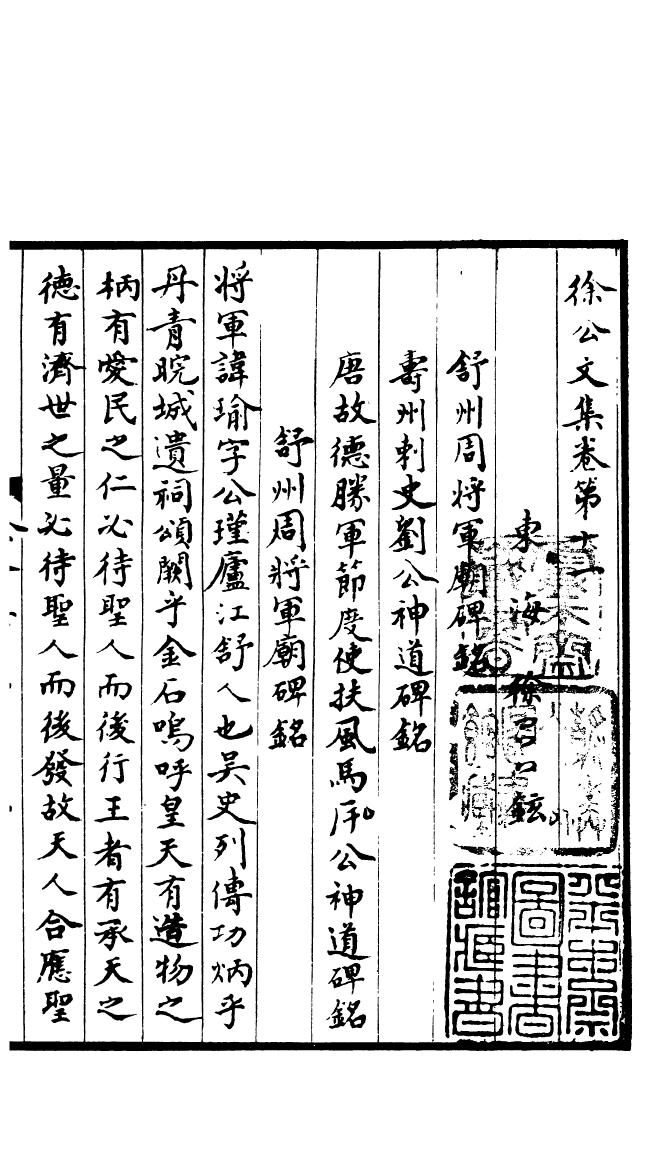 徐公文集卷第十一
東海徐鉉
舒州周將軍廟碑銘
壽州刺史劉公神道碑銘
唐故德勝軍節度使扶風馬公神道碑銘
舒州周將軍廟碑銘
將軍諱瑜字公瑾廬江舒人也吴史列傳功炳乎
丹青晥城遺祠頌闕乎金石嗚呼皇天有造物之
柄有愛民之仁必待聖人而後行王者有承天之
德有濟世之量必待聖人而後發故天人合應聖